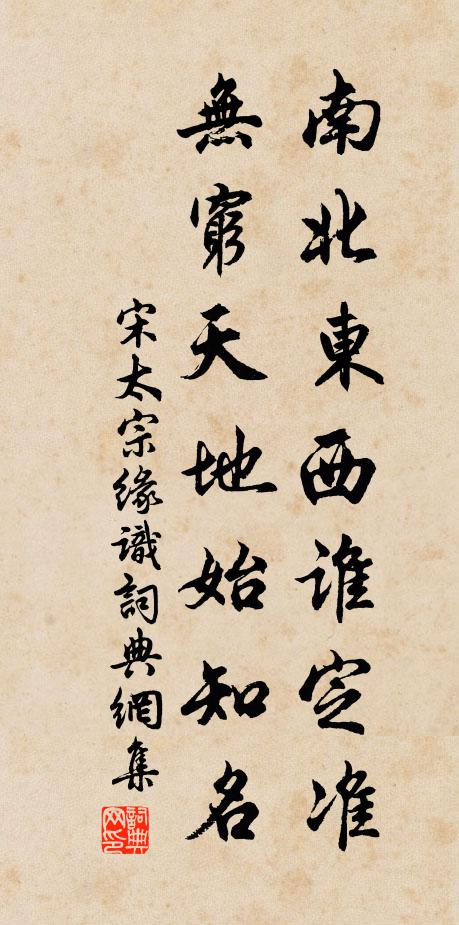 南北東西谁定准
無窮天地始知名
宋太宗緣識詞典網集
詞典网印